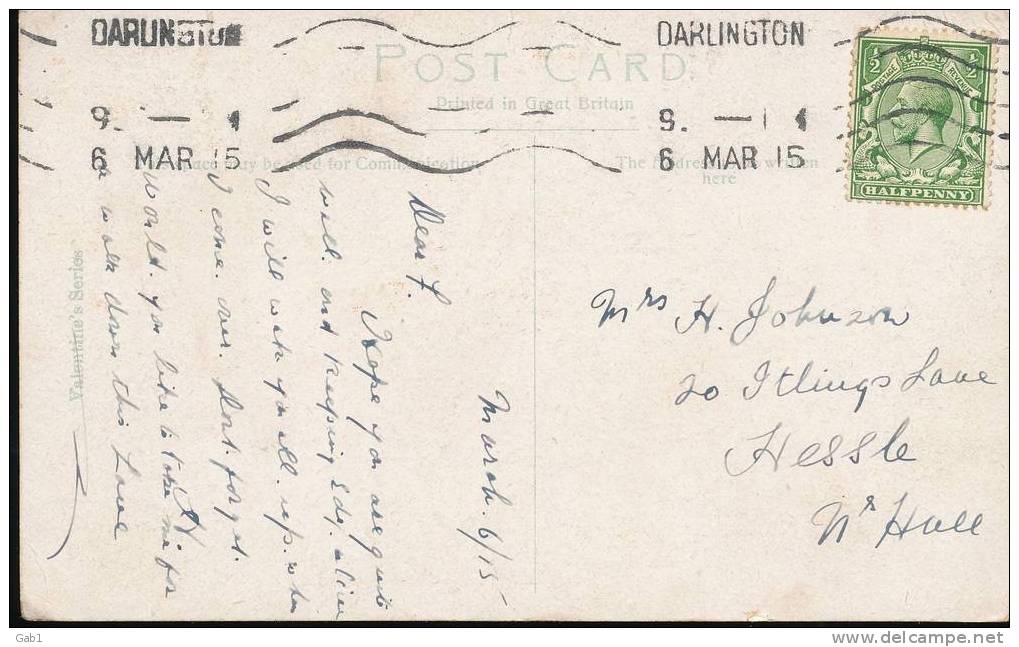 DARLINGTON
9. — 1
6 MAR 15
DARLINGTON
9. — 1
6 MAR 15
POST CARD
Printed in Great Britain
This space may be used for Communication
The Address to be written
here
½ ½
POSTAGE REVENUE
HALFPENNY
Valentine's Series
March. 6/15
Dear F.
Hope you are quite
well. and keeping
I will wake you all. up. when
I come. over. Dont. forget.
Would. you like to take me for
a walk down this Lane
Mrs H. Johnson
20 Itlings Lane
Hessle
Nr Hull
Gab1
www.delcampe.net